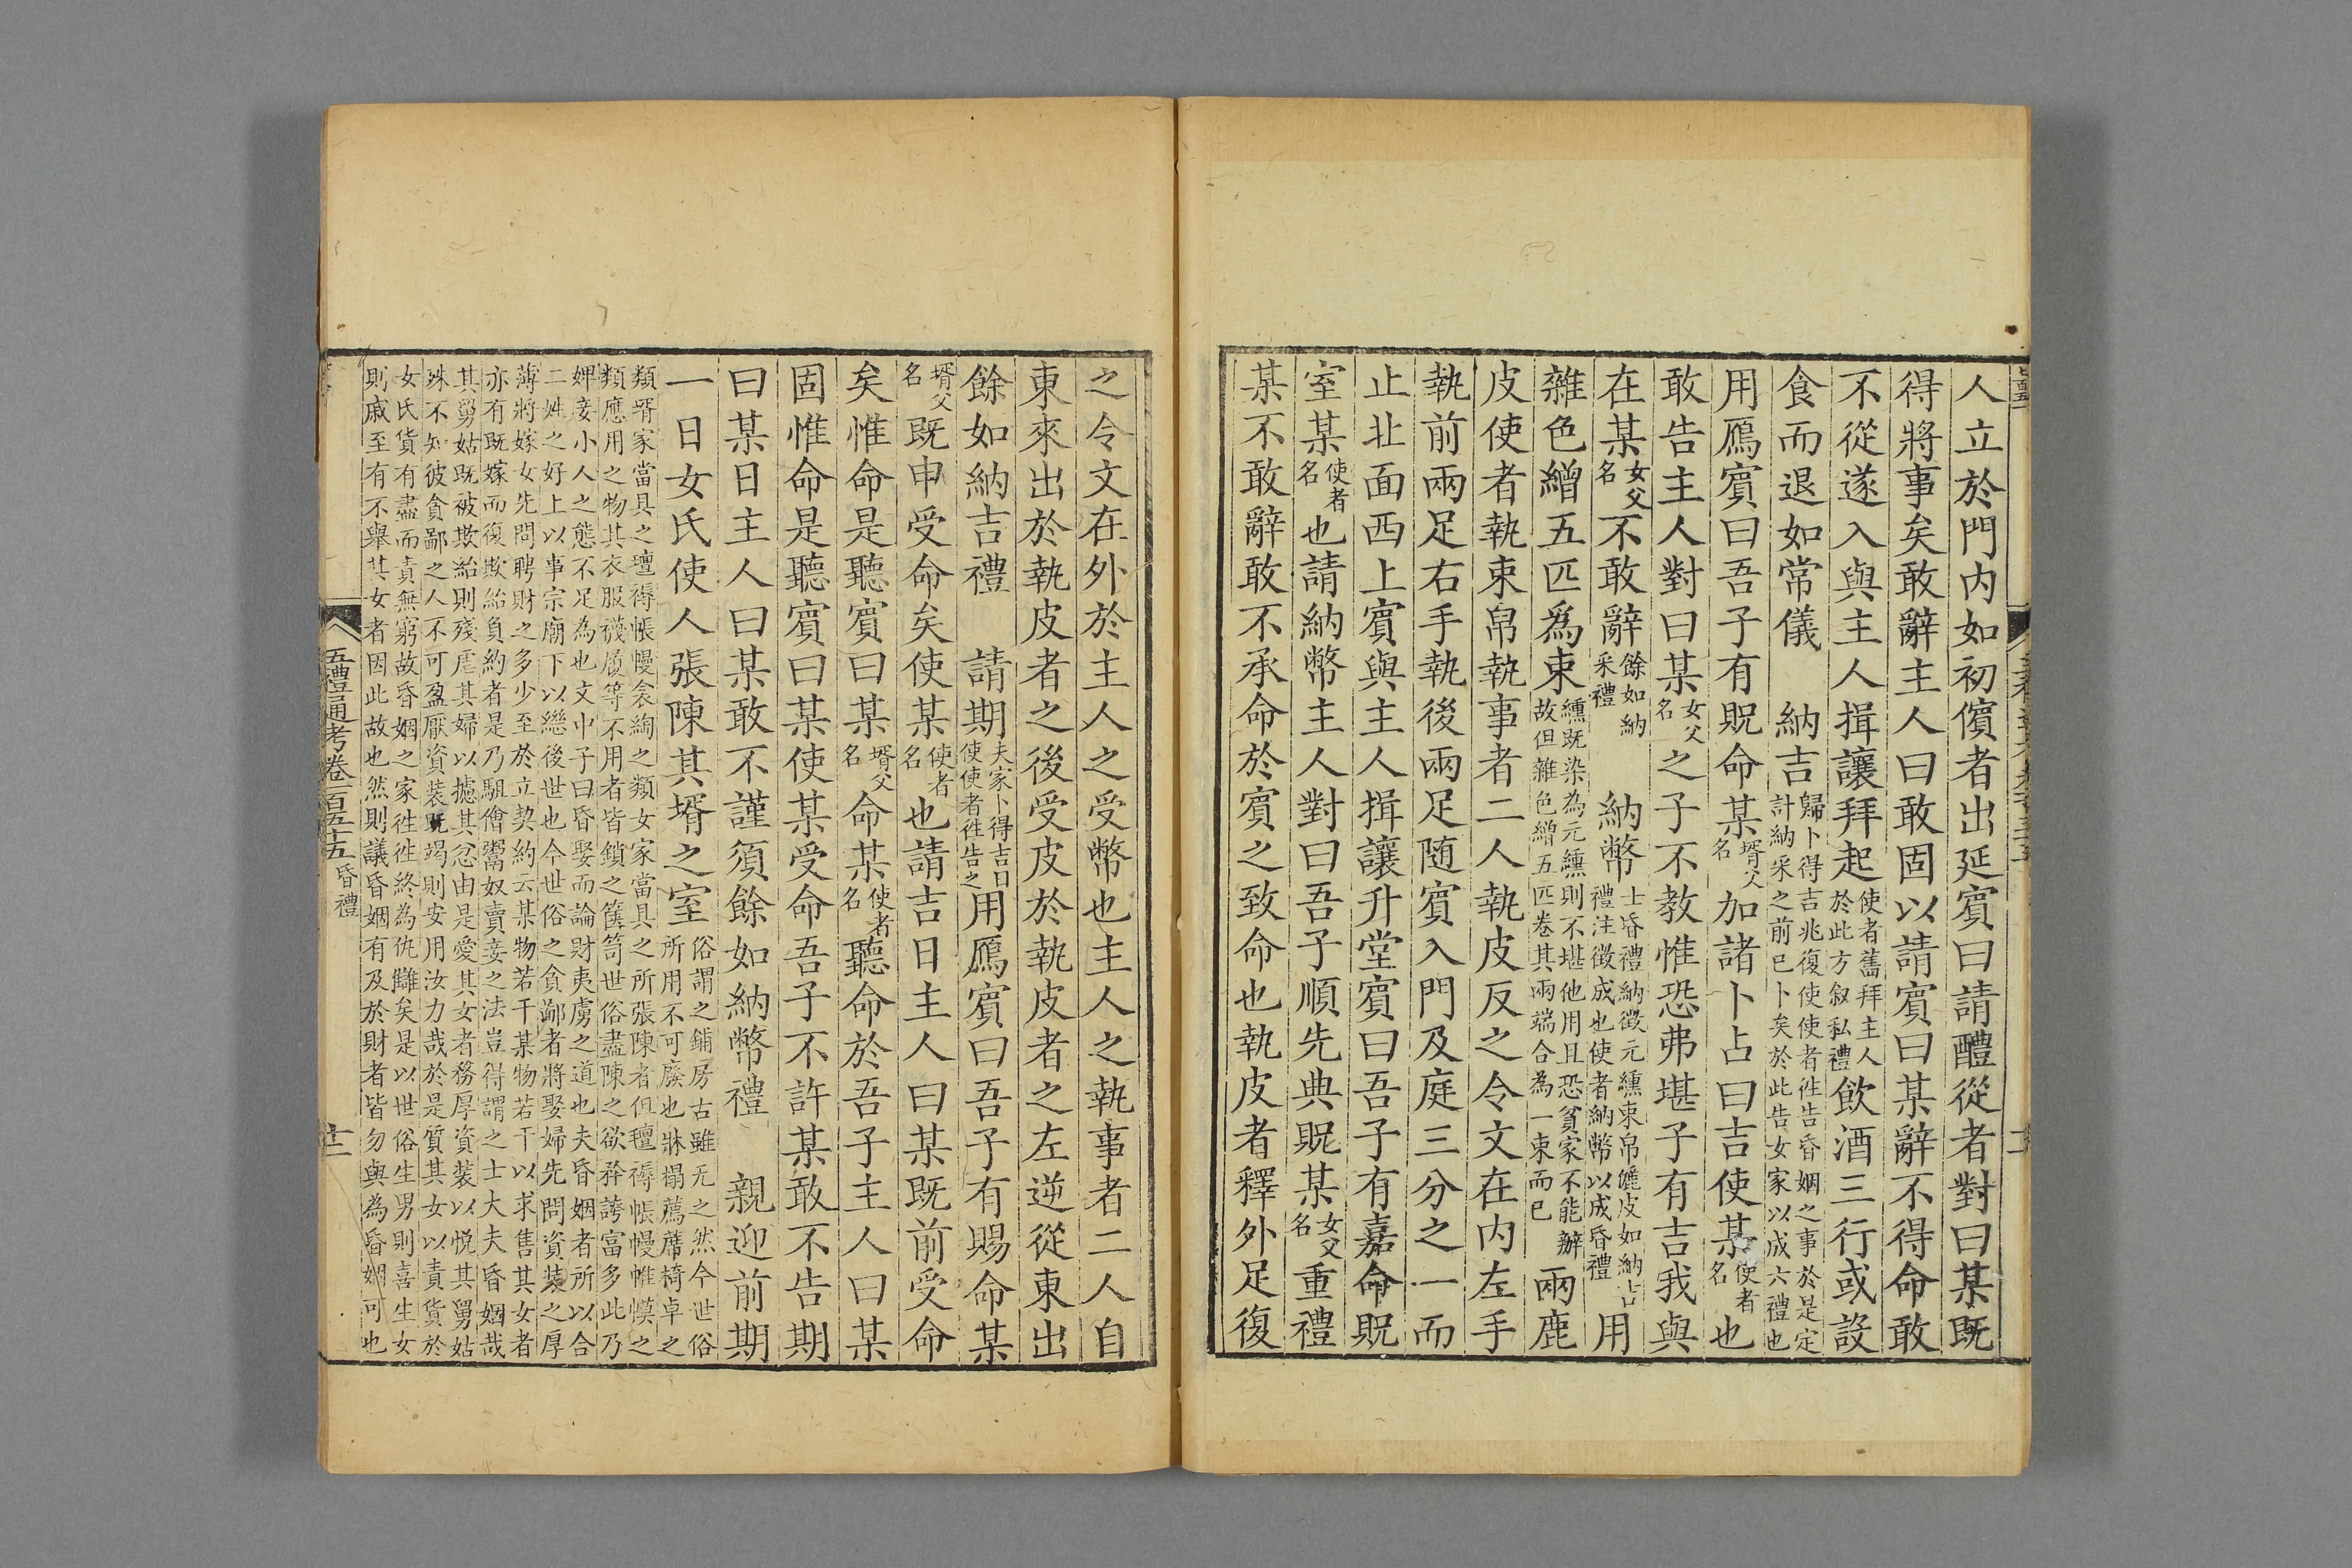 人立於門内如初儐者出延賓曰請醴從者對曰某既
得將事矣敢辭主人曰敢固以請賓曰某辭不得命敢
不從遂入與主人揖讓拜起使者舊拜主人於此方叙私禮飲酒三行或設
食而退如常儀　納吉歸卜得吉兆復使使者徃告昏姻之事於是定計納采之前已卜矣於此告女家以成六禮也
用鴈賓曰吾子有貺命某壻父名加諸卜占曰吉使某使者名也
敢告主人對曰某女父名之子不教惟恐弗堪子有吉我與
在某女父名不敢辭餘如納采禮　納幣士昏禮納徵元纁束帛儷皮如納吉禮注徵成也使者納幣以成昏禮用
雜色繒五匹爲束纁既染為元纁則不堪他用且恐貧家不能辦故但雜色繒五匹卷其兩端合為一束而已兩鹿
皮使者執束帛執事者二人執皮反之令文在内左手
執前兩足右手執後兩足随賓入門及庭三分之一而
止北面西上賓與主人揖讓升堂賓曰吾子有嘉命貺
室某使者名也請納幣主人對曰吾子順先典貺某女父名重禮
某不敢辭敢不承命於賓之致命也執皮者釋外足復
之令文在外於主人之受幣也主人之執事者二人自
東來出於執皮者之後受皮於執皮者之左逆從東出
餘如納吉禮　請期夫家卜得吉日使使者徃告之用鴈賓曰吾子有賜命某
壻父名既申受命矣使某使者名也請吉日主人曰某既前受命
矣惟命是聽賓曰某壻父名命某使者名聽命於吾子主人曰某
固惟命是聽賓曰某使某受命吾子不許某敢不告期
曰某日主人曰某敢不謹須餘如納幣禮　親迎前期
一日女氏使人張陳其壻之室俗謂之鋪房古雖无之然今世俗所用不可廢也牀榻薦席椅卓之
類壻家當具之氊褥帳幔衾綯之類女家當具之所張陳者但氊褥帳幔帷幙之
類應用之物其衣服襪履等不用者皆鎖之篋笥世俗盡陳之欲矜誇富多此乃
婢妾小人之態不足為也文中子曰昏娶而論財夷虜之道也夫昏姻者所以合
二姓之好上以事宗廟下以繼後世也今世俗之貪鄙者將娶婦先問資裝之厚
薄將嫁女先問聘財之多少至於立契約云某物若干某物若干以求售其女者
亦有既嫁而復欺紿負約者是乃駔儈鬻奴賣妾之法豈得謂之士大夫昏姻哉
其舅姑既被欺紿則殘虐其婦以攄其忿由是愛其女者務厚資裝以悦其舅姑
殊不知彼貪鄙之人不可盈厭資裝既竭則安用汝力哉於是質其女以責貨於
女氏貨有盡而責無窮故昏姻之家徃徃終為仇讎矣是以世俗生男則喜生女
則戚至有不舉其女者因此故也然則議昏姻有及於財者皆勿與為昏姻可也
五禮通考卷一百五十五昏禮
十二